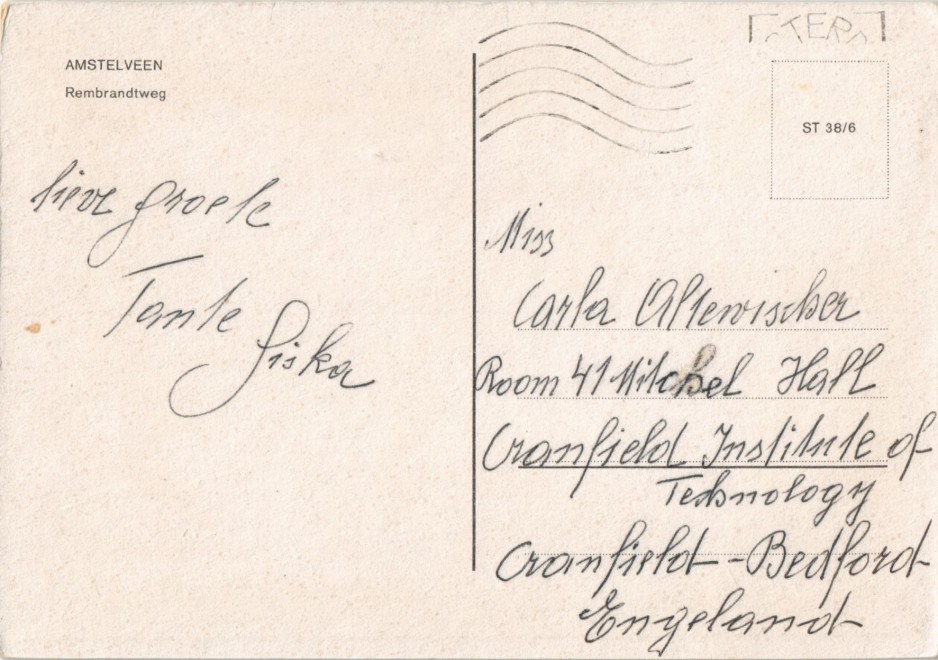 AMSTELVEEN
Rembrandtweg
lieve groete
Tante
Siska
ST 38/6
Miss
Carla Oltewischer
Room 41 Mitchel Hall
Cranfield Institute of
Technology
Cranfield - Bedford
Engeland